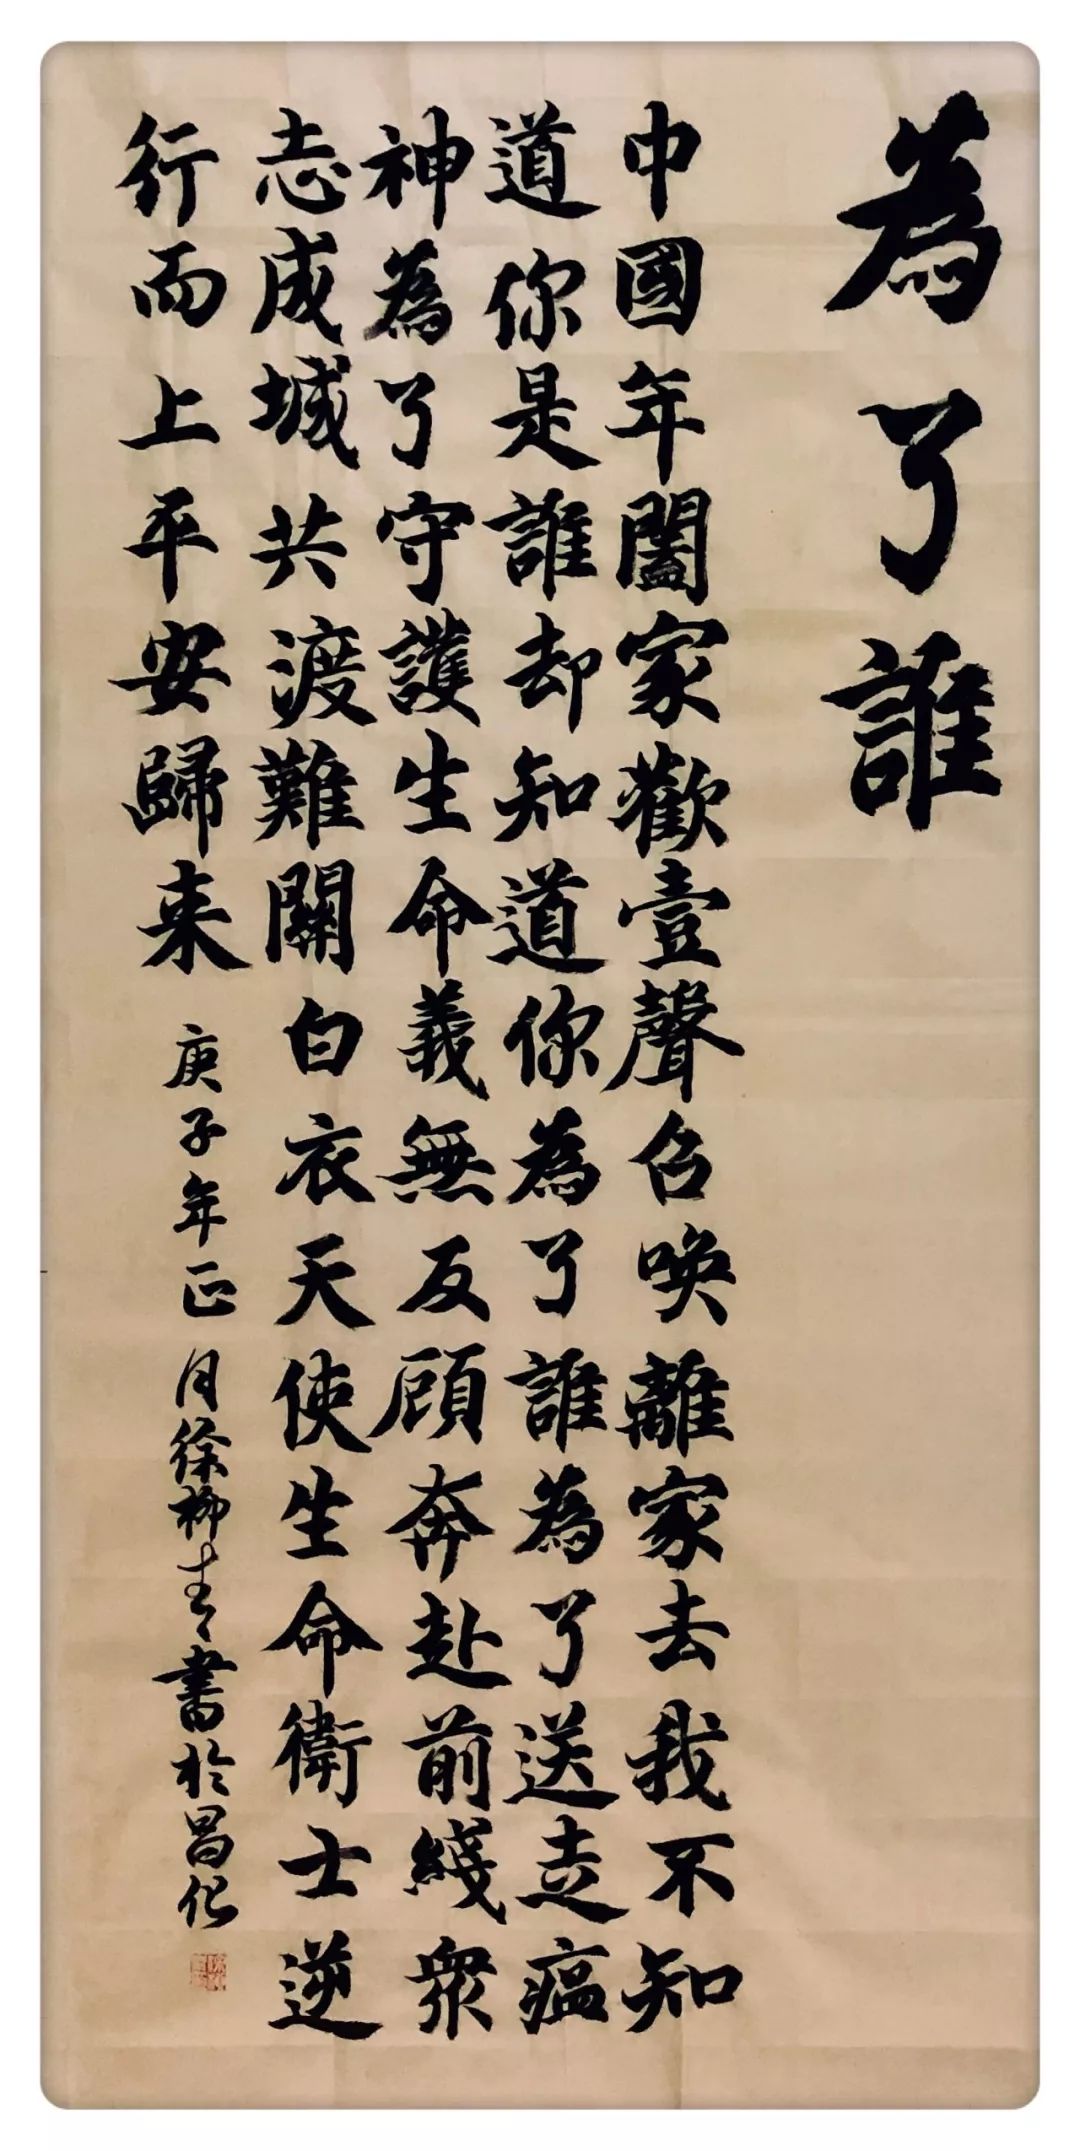 為了誰
中國年闔家歡壹聲召喚離家去我不知
道你是誰却知道你為了誰為了送走瘟
神為了守護生命義無反顧奔赴前綫衆
志成城共渡難關白衣天使生命衛士逆
行而上平安歸来 庚子年正月徐柳青書於昌化